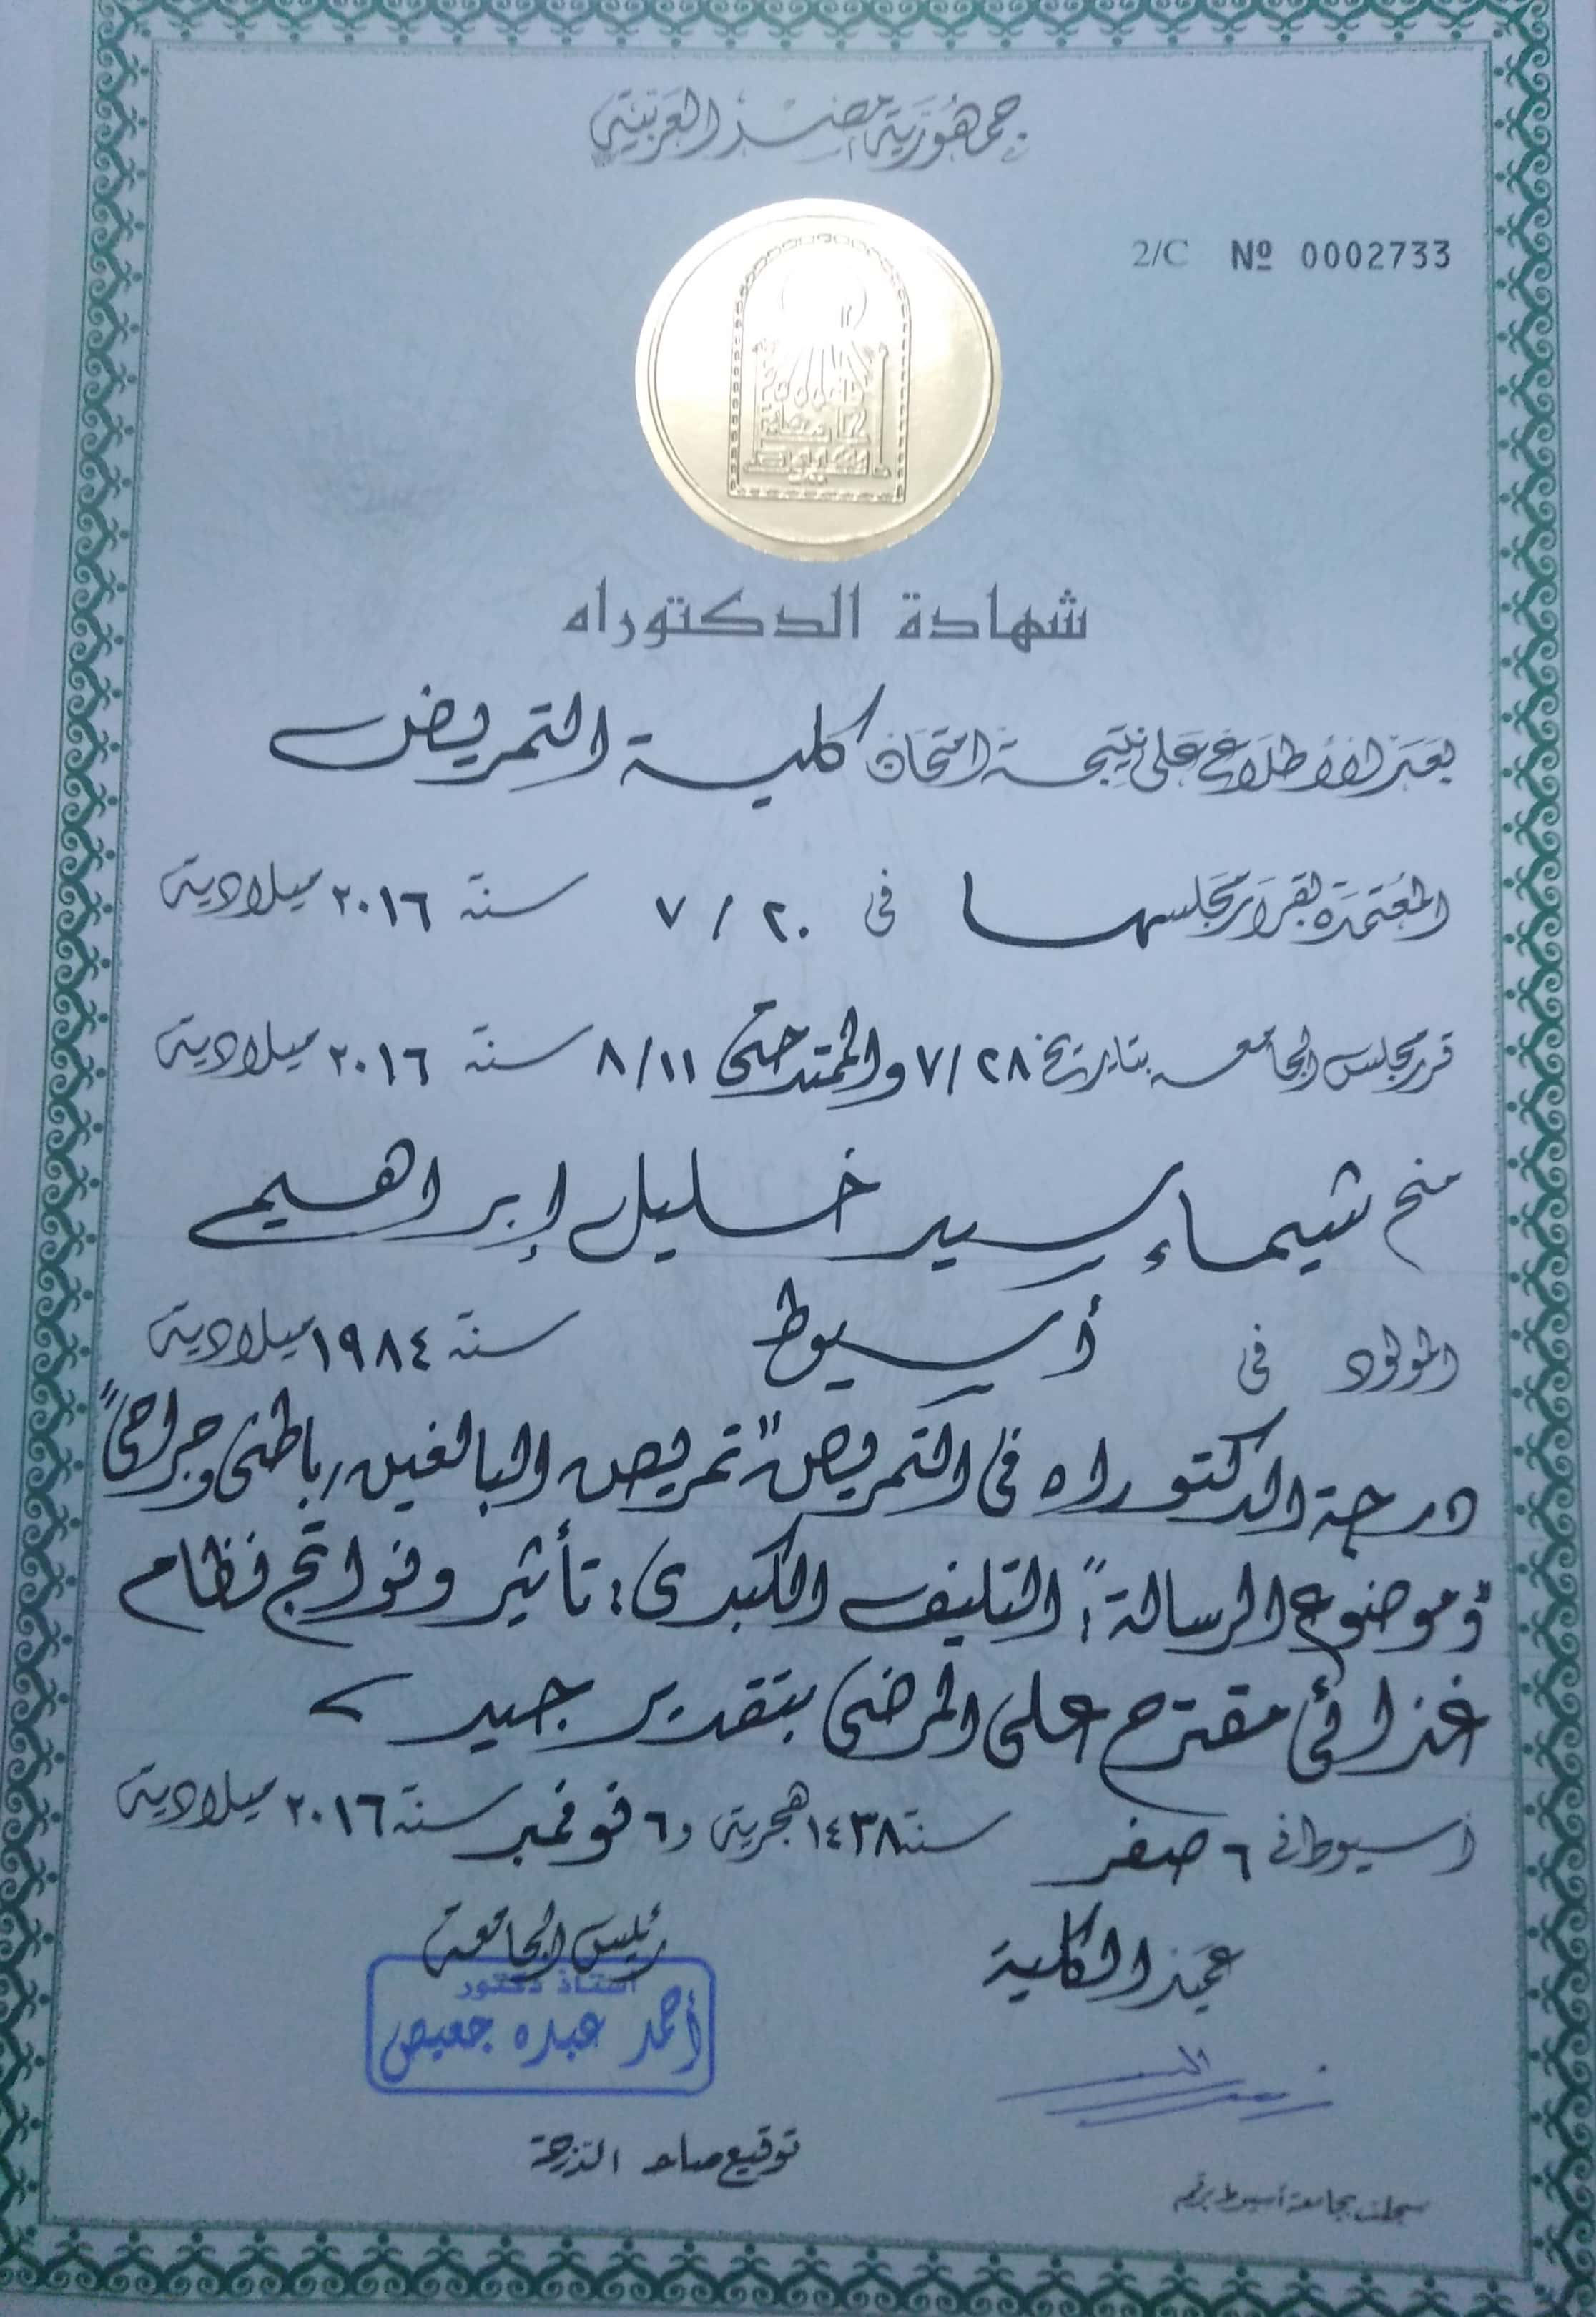 جمهورية مصر العربية
2/C Nº 0002733
جامعة
أسيوط
شهادة الدكتوراه
بعد الاطلاع على نتيجة امتحان كلية التمريض
المعتمدة بقرار مجلسها فى ٢٠ / ٧ سنة ٢٠١٦ ميلادية
قرر مجلس الجامعة بتاريخ ٧/٢٨ والممتد حتى ٨/١١ سنة ٢٠١٦ ميلادية
منح شيماء سيد خليل إبراهيم
المولود فى أسيوط سنة ١٩٨٤ ميلادية
درجة الدكتوراه فى التمريض "تمريض البالغين باطنى وجراحى"
"وموضوع الرسالة": التليف الكبدى: تأثير ونواتج نظام
غذائى مقترح على المرضى بتقدير جيد
أسيوط فى ٦ صفر سنة ١٤٣٨ هجرية و ٦ نوفمبر سنة ٢٠١٦ ميلادية
عميد الكلية رئيس الجامعة
أستاذ دكتور
أحمد عبده جعيص
توقيع صاحب الدرجة
سجلت بجامعة أسيوط برقم